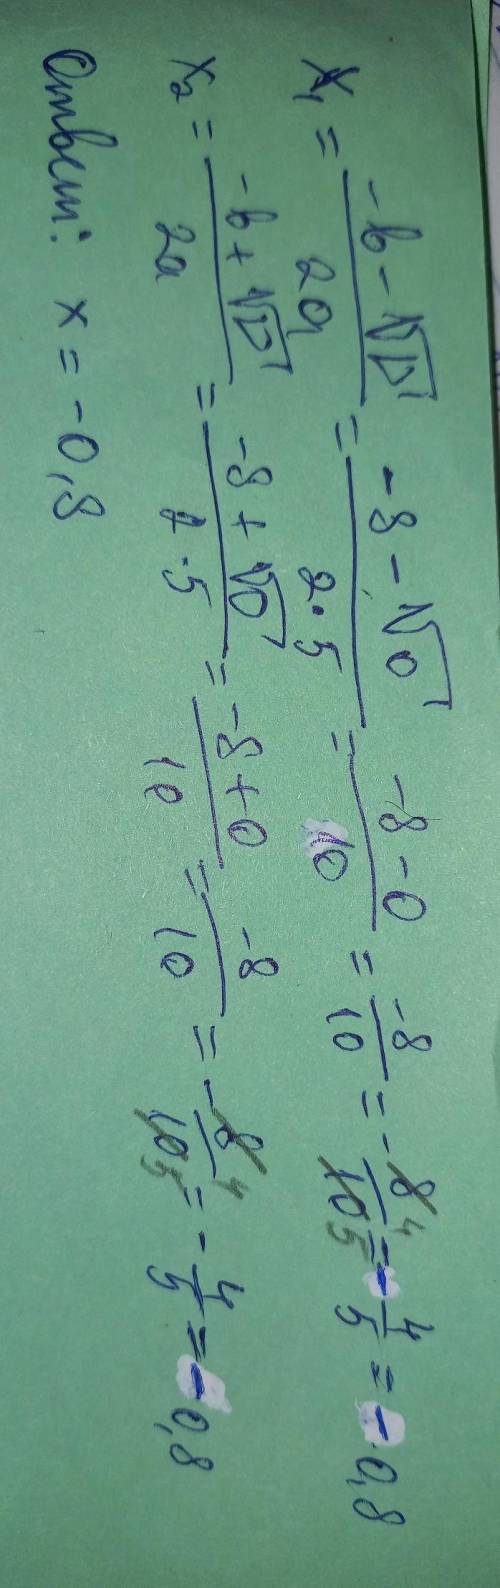 x₁ = (-b - √D)/(2a) = (-8 - √0)/(2·5) = (-8 - 0)/10 = -8/10 = -8/10 4 5 = -4/5 = -0,8
x₂ = (-b + √D)/(2a) = (-8 + √0)/(2·5) = (-8 + 0)/10 = -8/10 = -8/10 4 5 = -4/5 = -0,8
Ответ: x = -0,8